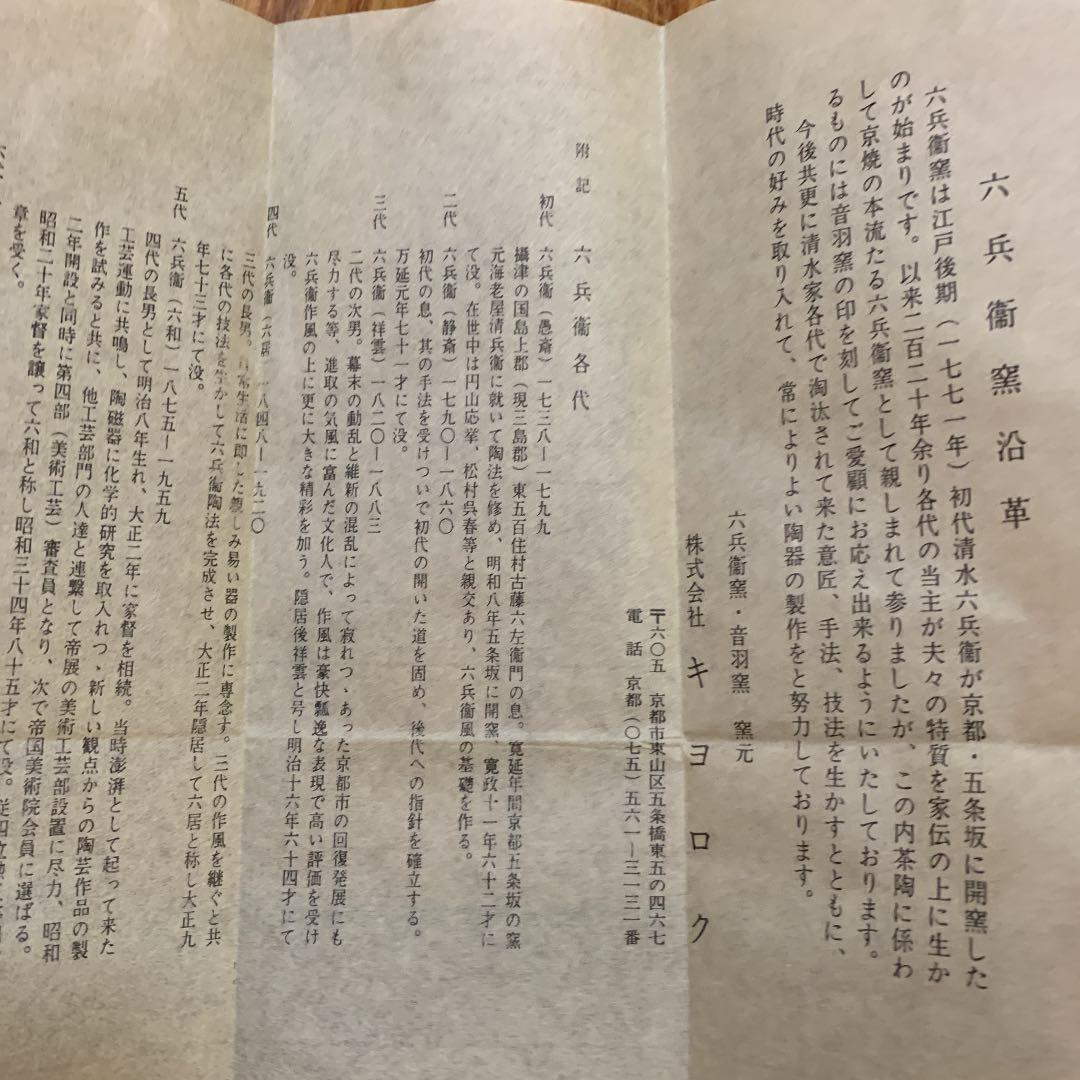 六兵衞窯沿革
六兵衞窯は江戸後期(一七七一年)初代清水六兵衞が京都・五条坂に開窯した
のが始まりです。以来二百二十年余り各代の当主が夫々の特質を家伝の上に生か
して京焼の本流たる六兵衞窯として親しまれて参りましたが、この内茶陶に係わ
るものには音羽窯の印を刻してご愛顧にお応え出来るようにいたしております。
今後共更に清水家各代で淘汰されて来た意匠、手法、技法を生かすとともに、
時代の好みを取り入れて、常によりよい陶器の製作をと努力しております。
六兵衞窯・音羽窯 窯元
株式会社キヨロク
〒六〇五 京都市東山区五条橋東五の四六七
電話 京都(〇七五)五六一―三一三一番
附記 六兵衞各代
初代 六兵衞(愚斎)一七三八―一七九九
攝津の国島上郡(現三島郡)東五百住村古藤六左衞門の息。寛延年間京都五条坂の窯
元海老屋清兵衞に就いて陶法を修め、明和八年五条坂に開窯、寛政十一年六十二才に
て没。在世中は円山応挙、松村呉春等と親交あり、六兵衞風の基礎を作る。
二代 六兵衞(静斎)一七九〇―一八六〇
初代の息、其の手法を受けついで初代の開いた道を固め、後代への指針を確立する。
万延元年七十一才にて没。
三代 六兵衞(祥雲)一八二〇―一八八三
二代の次男。幕末の動乱と維新の混乱によって寂れつゝあった京都市の回復発展にも
尽力する等、進取の気風に富んだ文化人で、作風は豪快瓢逸な表現で高い評価を受け
六兵衞作風の上に更に大きな精彩を加う。隠居後祥雲と号し明治十六年六十四才にて
没。
四代 六兵衞(六居)一八四八―一九二〇
三代の長男。日常生活に即した親しみ易い器の製作に専念す。三代の作風を継ぐと共
に各代の技法を生かして六兵衞陶法を完成させ、大正二年隠居して六居と称し大正九
年七十三才にて没。
五代 六兵衞(六和)一八七五―一九五九
四代の長男として明治八年生れ、大正二年に家督を相続。当時澎湃として起って来た
工芸運動に共鳴し、陶磁器に化学的研究を取入れつゝ新しい観点からの陶芸作品の製
作を試みると共に、他工芸部門の人達と連繋して帝展の美術工芸部設置に尽力、昭和
二年開設と同時に第四部(美術工芸)審査員となり、次で帝国美術院会員に選ばる。
昭和二十年家督を譲って六和と称し昭和三十四年八十五才にて没。従四位勲
章を受く。